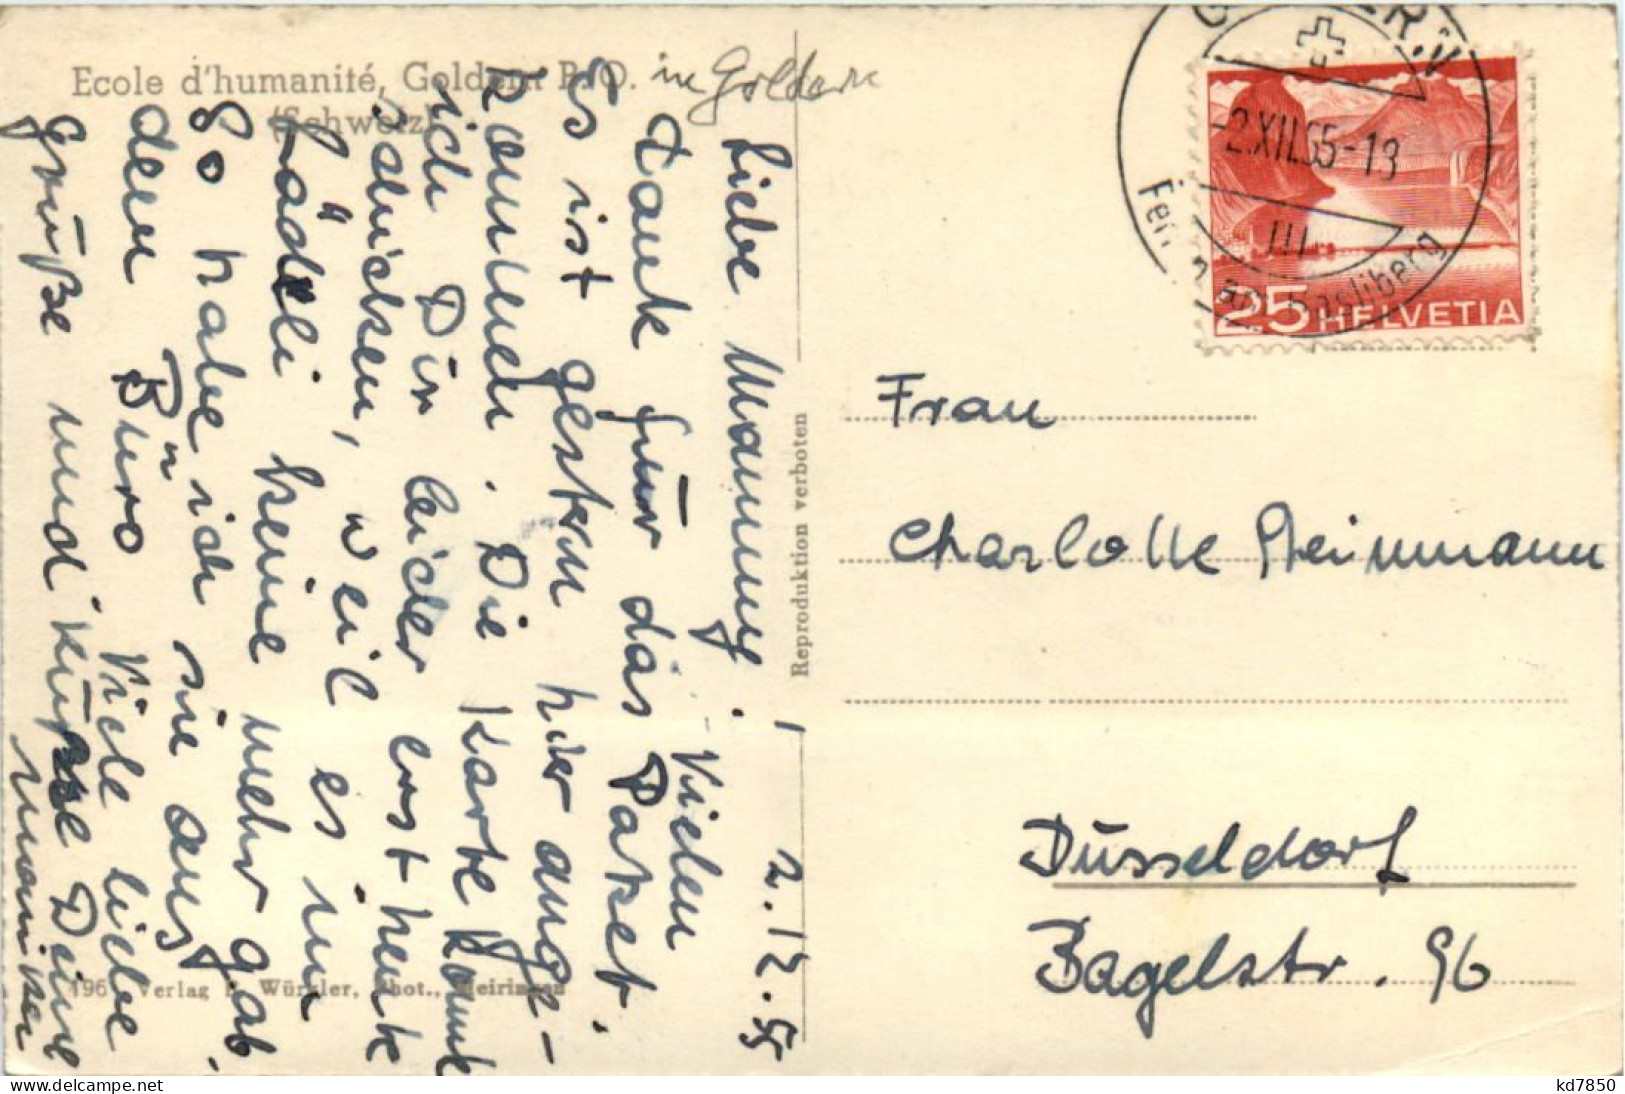 Ecole d'humanité, Goldern P. O.
(Schweiz)
in Goldern
2.12.55
Liebe Mammy! Vielen
Dank für das Paket.
Es ist gestern hier ange-
kommen. Die Karte konnte
ich Dir leider erst heute
schicken, weil es im
"Lädeli" keine mehr gab.
So habe ich sie aus
dem Büro. Viele liebe
Grüße und Küsse Deine
196 Verlag Würkler, Phot., Meiringen
Reproduktion verboten
-2.XII.55-13
III
25 HELVETIA
Frau
Charlotte
Düsseldorf
Bagelstr. 96
kd7850